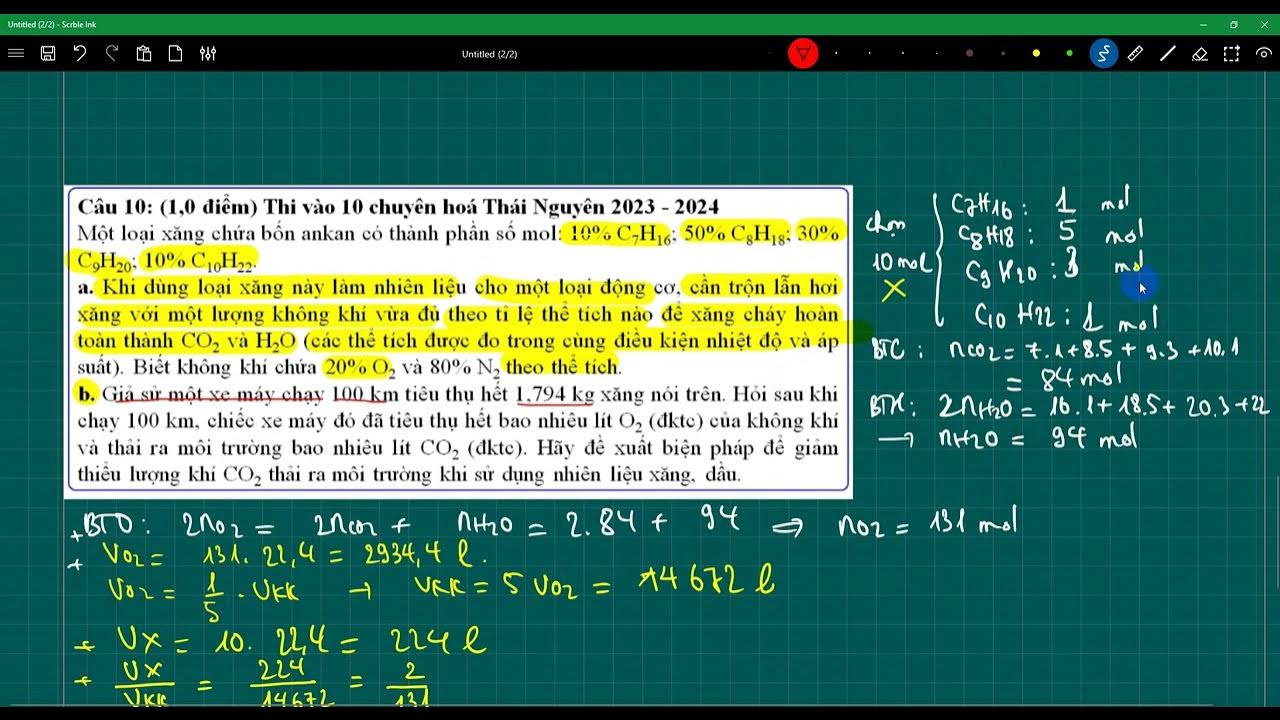 Untitled (2/2) - Scrble Ink
Untitled (2/2)
Câu 10: (1,0 điểm) Thi vào 10 chuyên hoá Thái Nguyên 2023 - 2024
Một loại xăng chứa bốn ankan có thành phần số mol: 10% C7H16; 50% C8H18; 30%
C9H20; 10% C10H22.
a. Khi dùng loại xăng này làm nhiên liệu cho một loại động cơ, cần trộn lẫn hơi
xăng với một lượng không khí vừa đủ theo tỉ lệ thể tích nào để xăng cháy hoàn
toàn thành CO2 và H2O (các thể tích được đo trong cùng điều kiện nhiệt độ và áp
suất). Biết không khí chứa 20% O2 và 80% N2 theo thể tích.
b. Giả sử một xe máy chạy 100 km tiêu thụ hết 1,794 kg xăng nói trên. Hỏi sau khi
chạy 100 km, chiếc xe máy đó đã tiêu thụ hết bao nhiêu lít O2 (đktc) của không khí
và thải ra môi trường bao nhiêu lít CO2 (đktc). Hãy đề xuất biện pháp để giảm
thiểu lượng khí CO2 thải ra môi trường khi sử dụng nhiên liệu xăng, dầu.
chọn
10 mol
X
C7H16 : 1 mol
C8H18 : 5 mol
C9H20 : 3 mol
C10H22 : 1 mol
BTC : nCO2 = 7.1+8.5 + 9.3 +10.1
= 84 mol
BTH : 2nH2O = 16.1+18.5+ 20.3+22
→ nH2O = 94 mol
+ BTO : 2nO2 = 2nCO2 + nH2O = 2.84 + 94 ⇒ nO2 = 131 mol
+ VO2 = 131. 22,4 = 2934,4 l.
VO2 = 1/5 . VKK → VKK = 5 VO2 = 14672 l
+ VX = 10. 22,4 = 224 l
+ VX/VKK = 224/14672 = 2/131